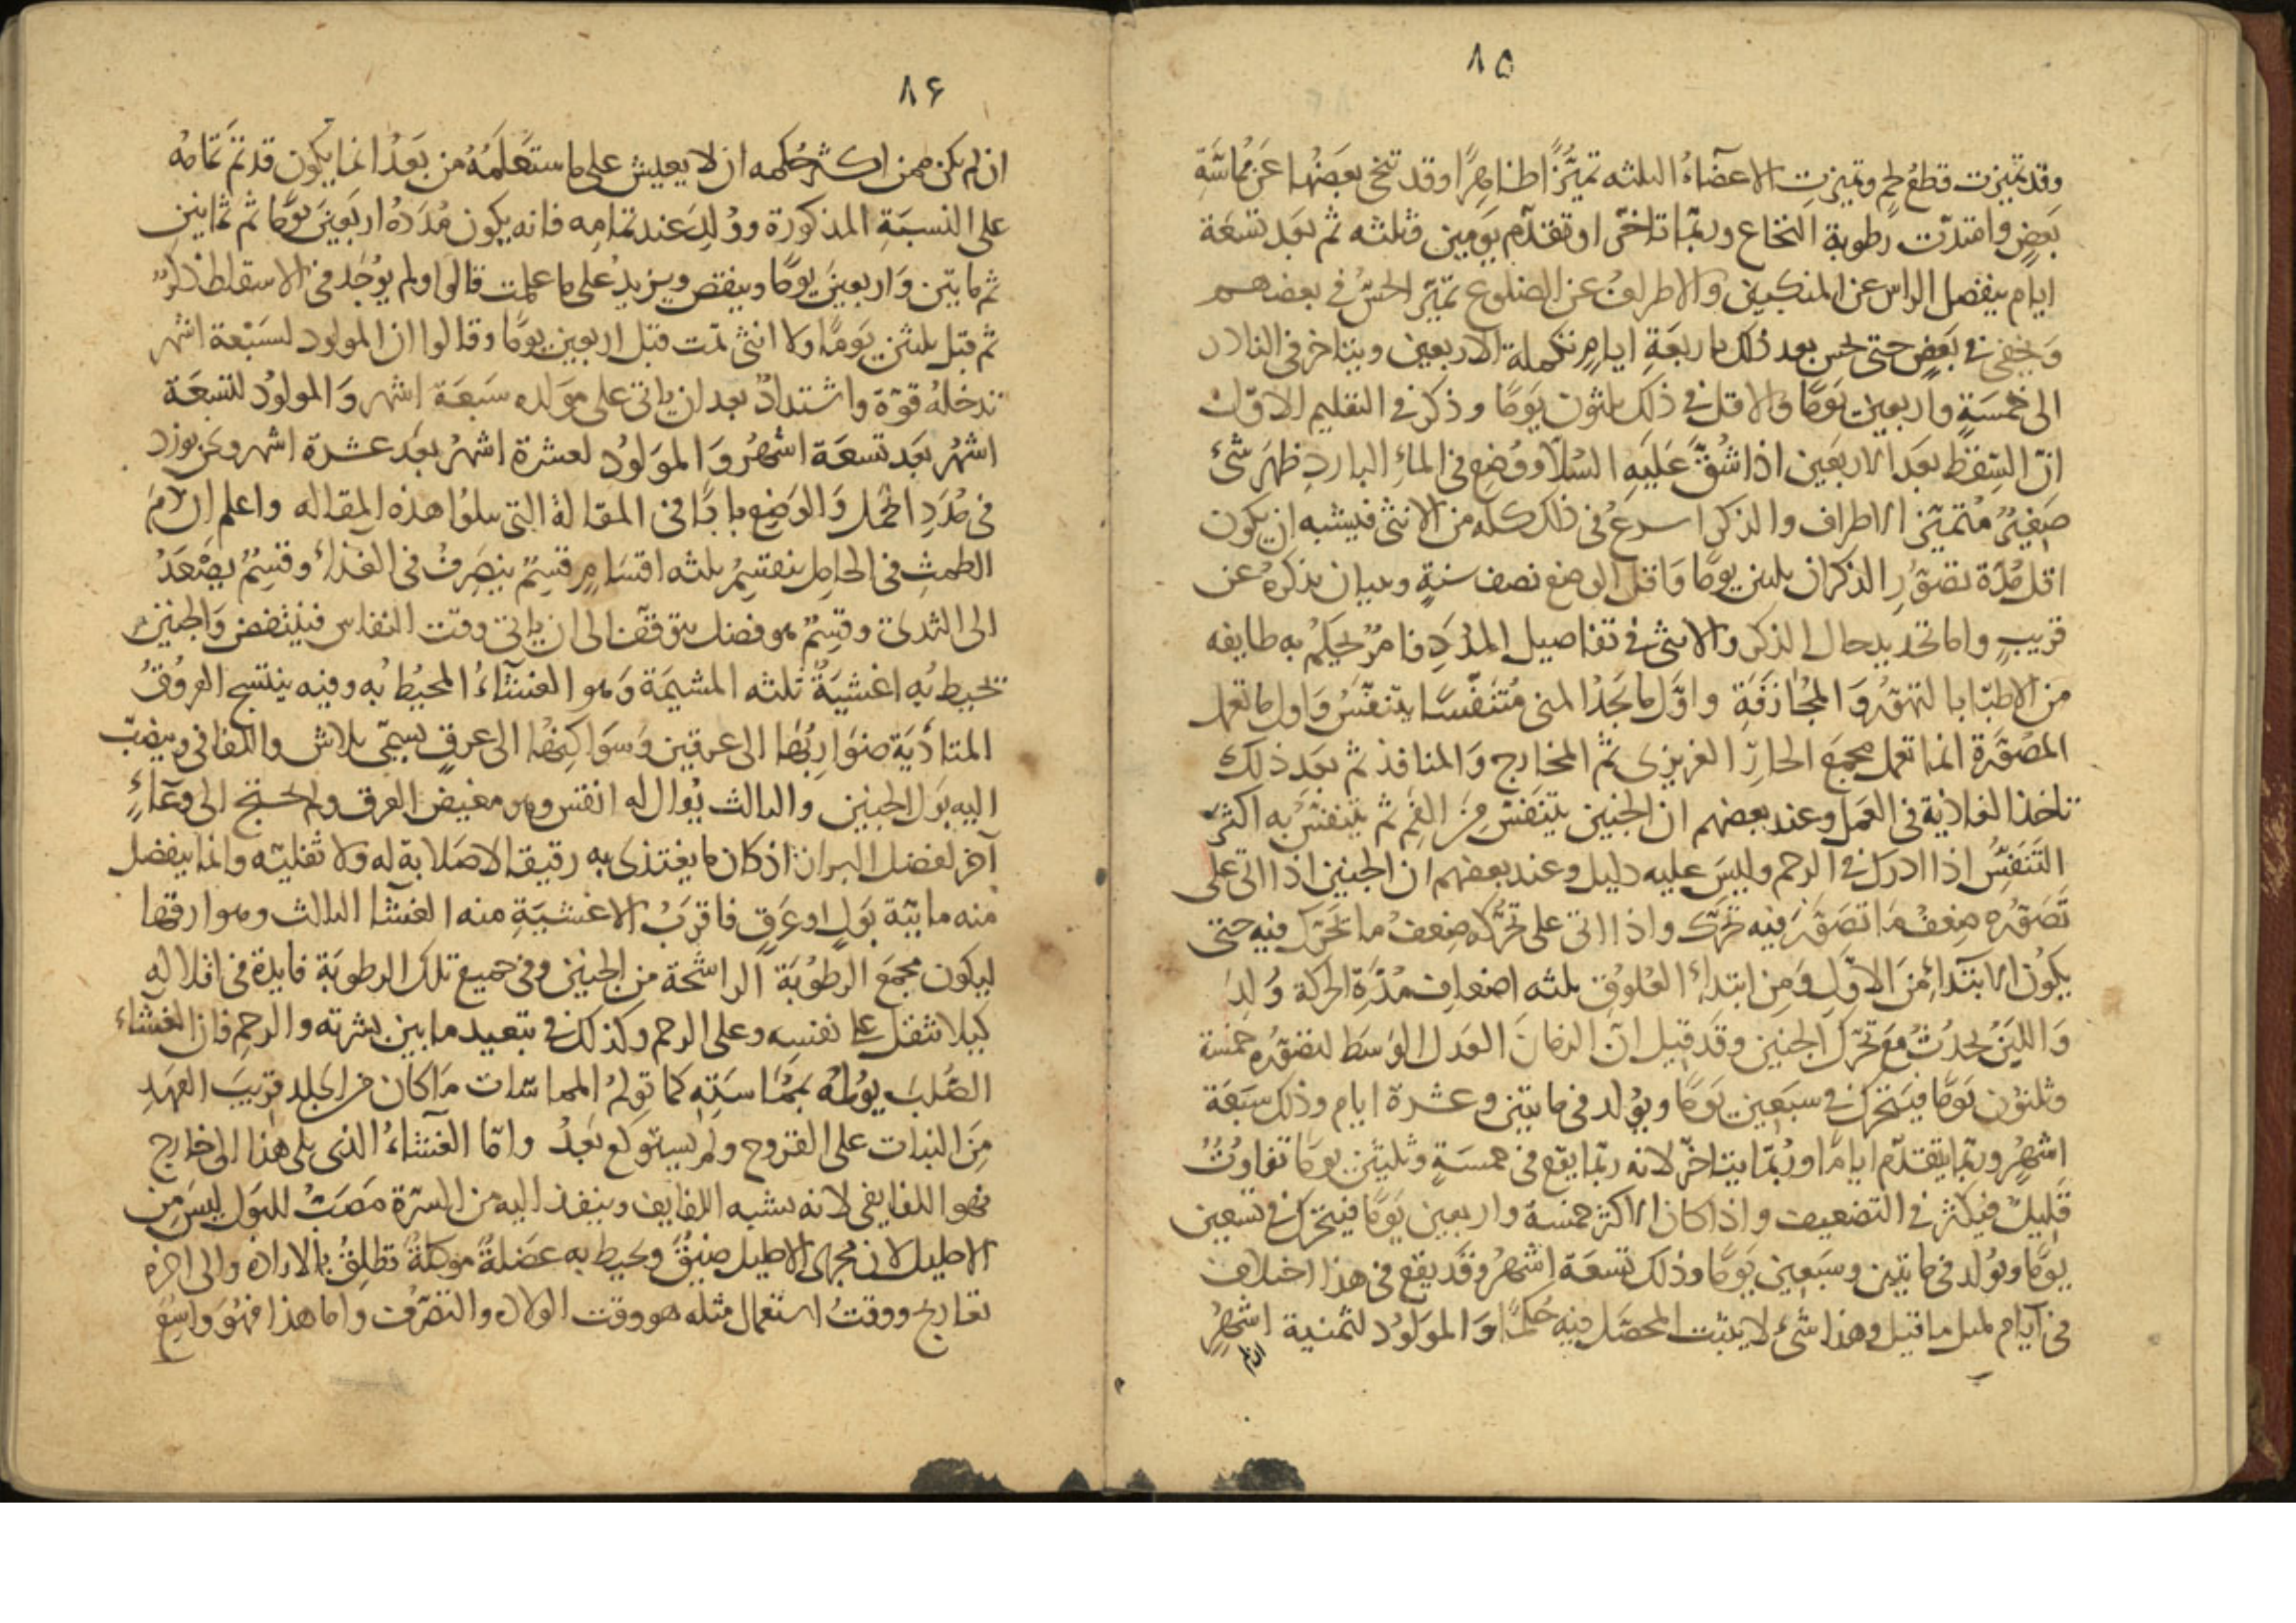 ٨٥
وقد تميزت قطع لحم وتميزت الاعضاء الثلثه تميزا ظاهرا وقد تنحى بعضها عن مماسة
بعض وامتدت رطوبة النخاع وربما تاخر او تقدم يومين وثلثه ثم بعد تسعة
ايام ينفصل الراس عن المنكبين والاطراف عن الضلوع تميز الحس في بعضهم
ويخفى في بعض حتى يحس بعد ذلك باربعة ايام تكملة الاربعين ويتاخر في النادر
الى خمسة واربعين يوما والاقل في ذلك ثلثون يوما وذكر في التعليم الاول
ان السقط بعد الاربعين اذا شق عليه السلا ووضع في الماء البارد ظهر شئ
صغير متميز الاطراف والذكر اسرع في ذلك كله من الانثى فيشبه ان يكون
اقل مدة تصور الذكران ثلثين يوما واقل الوضع نصف سنة وبيان نذكره عن
قريب واما تحديد حال الذكر والانثى في تفاصيل المدد فامر يحكم به طايفه
من الاطبا بالتهور والمجازفة واول ما يجد المنى متنفسا يتنفس واول ما تعمل
المصورة انما تعمل مجمع الحار الغريزى ثم المخارج والمنافذ ثم بعد ذلك
تاخذ الغاذية في العمل وعند بعضهم ان الجنين يتنفس من الفم ثم يتنفس به اكثر
التنفس اذا ادرك في الرحم وليس عليه دليل وعند بعضهم ان الجنين اذا اتى على
تصوره ضعف ما تصور فيه تحرك واذا اتى على تحركه ضعف ما تحرك فيه حتى
يكون الابتداء من الاول ومن ابتداء العلوق ثلثه اضعاف مدة الحركة ولد
واللبن يحدث مع تحرك الجنين وقد قيل ان الزمان العدل الوسط لتصوره خمسة
وثلثون يوما فيتحرك في سبعين يوما ويولد في مايتين وعشرة ايام وذلك سبعة
اشهر وربما يتقدم اياما وربما يتاخر لانه ربما يقع في خمسة وثلثين يوما تفاوت
قليل فيكثر في التضعيف واذا كان الاكثر خمسة واربعين يوما فيتحرك في تسعين
يوما ويولد في مايتين وسبعين يوما وذلك تسعة اشهر وقد يقع في هذا اختلاف
في ايام لمثل ما قيل وهذا شئ لا يثبت المحصل فيه حكما والمولود لثمنية اشهر
ان لم
٨۶
ان لم يكن ممن اكثر حكمه ان لا يعيش على ما ستعلمه من بعد انما يكون قد تم تمامه
على النسبة المذكورة وولد عند تمامه فانه يكون مدده اربعين يوما ثم ثمانين
ثم مايتين واربعين يوما وينقص ويزيد على ما علمت قالوا ولم يوجد في الاسقاط ذكر
تم قبل ثلثين يوما ولا انثى تمت قبل اربعين يوما وقالوا ان المولود لسبعة اشهر
تدخله قوة واشتداد بعد ان ياتى على مولده سبعة اشهر والمولود لتسعة
اشهر بعد تسعة اشهر والمولود لعشرة اشهر بعد عشرة اشهر ونحن نورد
في مدد الحمل والوضع بابا في المقالة التى تتلوا هذه المقاله واعلم ان دم
الطمث في الحامل ينقسم ثلثه اقسام قسم ينصرف في الغذاء وقسم يصعد
الى الثدى وقسم هو فضل يتوقف الى ان ياتى وقت النفاس فينتفض والجنين
تحيط به اغشية ثلثه المشيمة وهو الغشاء المحيط به وفيه ينتسج العروق
المتادية ضواربها الى عرقين وسواكنها الى عرق يسمى بلاش والثانى وينصب
اليه بول الجنين والثالث يوال له انفس وهو مغيض العرق ولم يحتج الى وعاء
آخر لفضل البراز اذ كان ما يغتذى به رقيقا لا صلابة له ولا ثقلية وانما ينفصل
منه مايية بول او عرق فاقرب الاغشية منه الغشا الثالث وهو ارقها
ليكون مجمع الرطوبة الراشحة من الجنين وفى جميع تلك الرطوبة فايدة في اقلاله
كيلا تثقل على نفسه وعلى الرحم وكذلك في تبعيد ما بين بشرته والرحم فان الغشاء
الصلب يولمه بمماسته كما تولم المماسات ما كان من الجلد قريب العهد
من النبات على القروح ولم يستوكع بعد واما الغشاء الذى يلى هذا الى خارج
فهو اللفايفى لانه يشبه اللفايف وينفذ اليه من السرة مصب للبول ليس من
الاحليل لان مجرى الاحليل ضيق ويحيط به عضلة موكلة تطلق بالاراده والى اخره
تعاريج ووقت استعمال مثله هو وقت الولاد والتصرف واما هذا فهو واسع